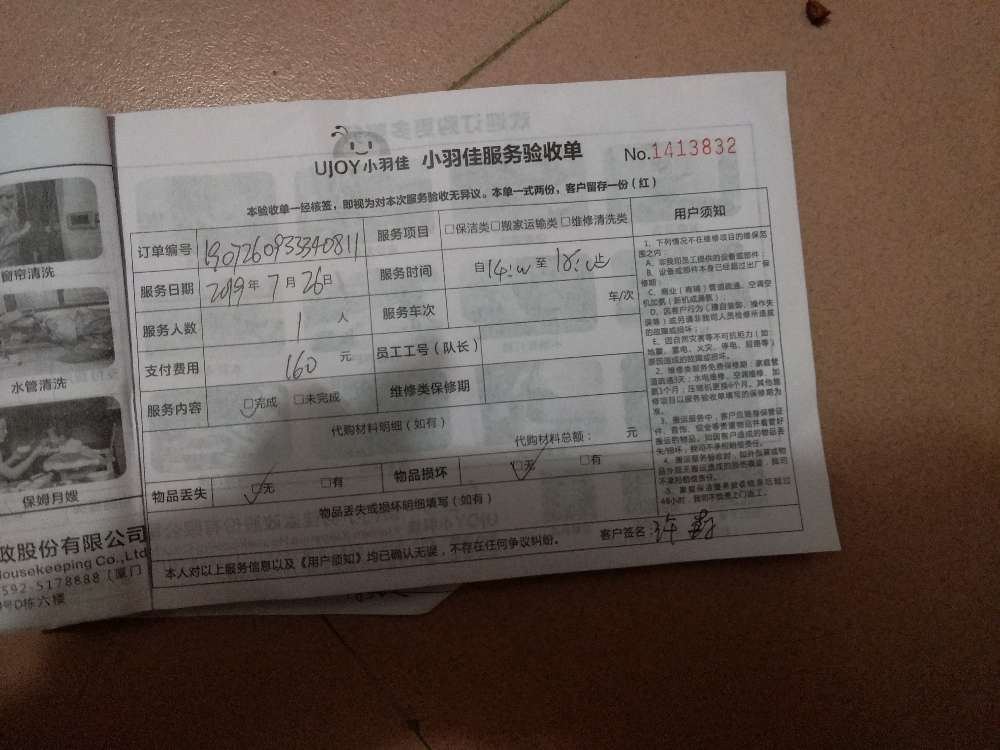 窗帘清洗
水管清洗
保姆月嫂
政股份有限公司
Housekeeping Co.,Ltd
592-5178888（厦门
号D栋六楼
UJOY小羽佳 小羽佳服务验收单 No.1413832
本验收单一经核签，即视为对本次服务验收无异议。本单一式两份，客户留存一份（红）
订单编号 190726093340811 服务项目 □保洁类□搬家运输类□维修清洗类
服务日期 2019年7月26日 服务时间 自14:00至18:00止
服务人数 1 人 服务车次 车/次
支付费用 160 元 员工工号（队长）
服务内容 □完成 □未完成 维修类保修期
代购材料明细（如有）
代购材料总额： 元
物品丢失 □无 □有 物品损坏 □无 □有
物品丢失或损坏明细填写（如有）
本人对以上服务信息以及《用户须知》均已确认无误，不存在任何争议纠纷。 客户签名：许
用户须知
1、下列情况不在维修项目的维保范
围之内：
A、非我司员工提供的设备或部件；
B、设备或部件本身已经超过出厂保
修期；
C、商业（商铺）管道疏通、空调安
机加氨（新机或漏氨）
D、因客户行为（擅自装卸、操作失
误等）或另请非我司人员检修所造成
的故障或损坏；
E、因自然灾害等不可抗拒力（如
地震、雷电、火灾、停电、短路等）
原因造成的故障或损坏。
2、维修类服务免费保修期：家庭管
道疏通3天；水电维修、空调维修、加
氨3个月；压缩机更换6个月。其他维
修项目以服务验收单填写的保修期为
准。
3、搬运服务中，客户应随身保管证
件、首饰、现金等贵重物品并看管好
搬运的物品，如因客户造成的物品丢
失/损坏，我司不承担赔偿责任。